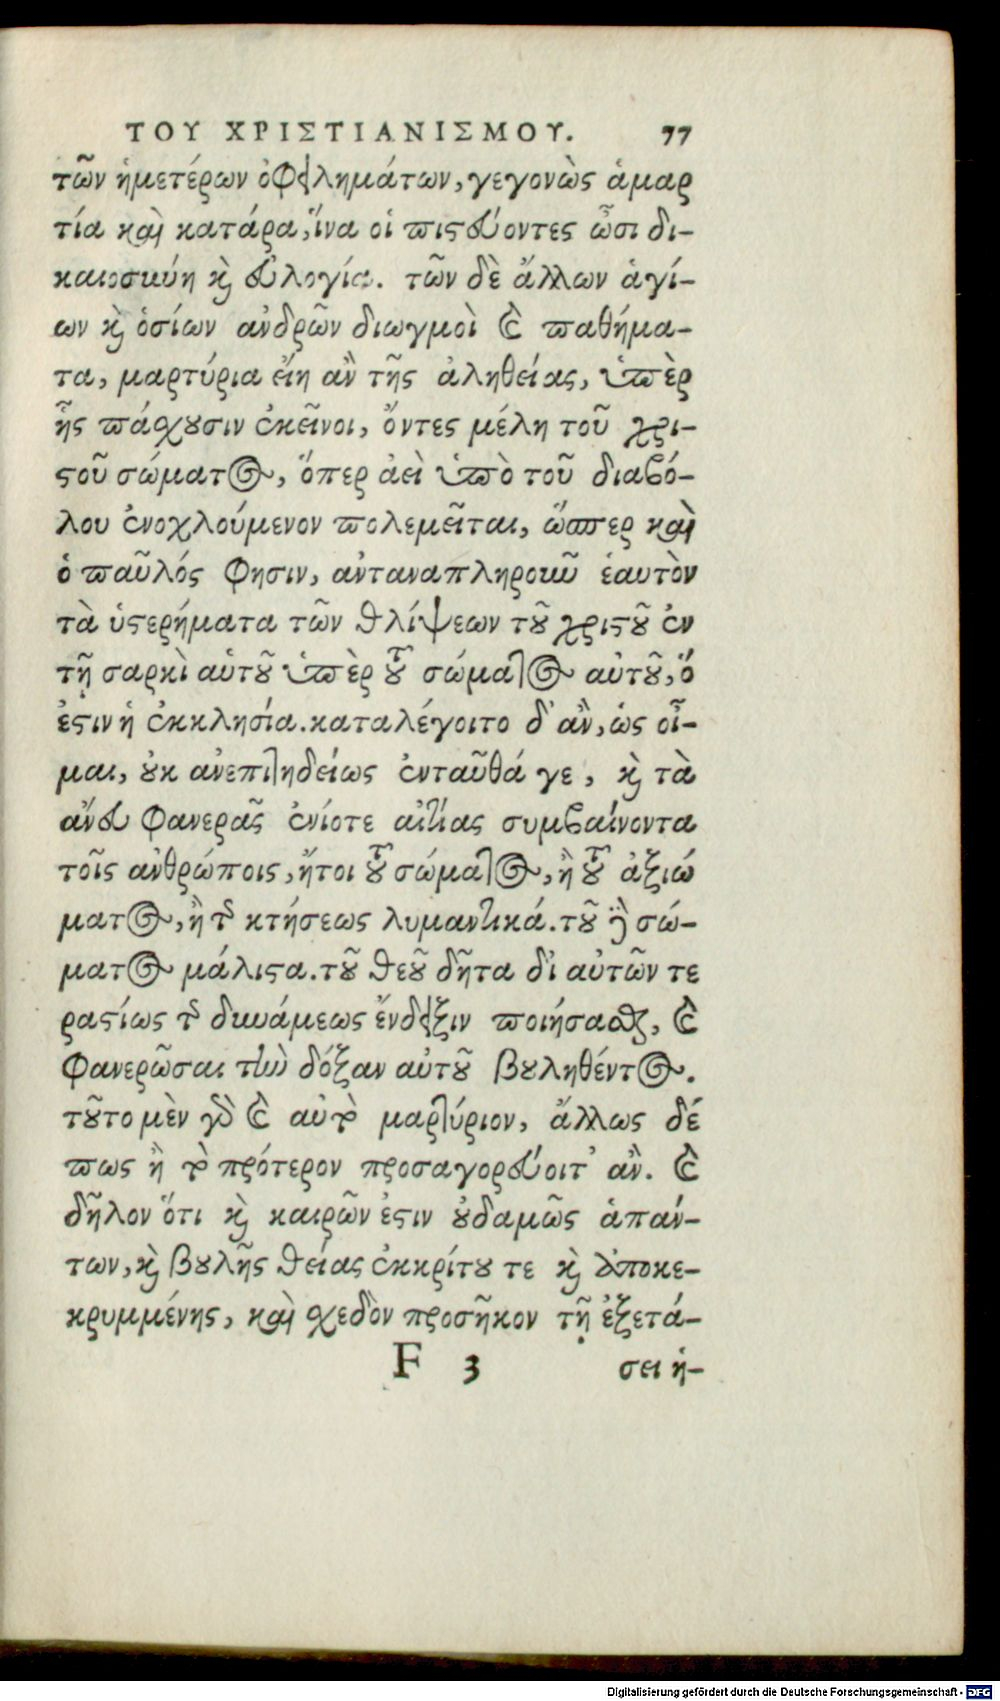 ΤΟΥ ΧΡΙΣΤΙΑΝΙΣΜΟΥ. 77
τῶν ἡμετέρων ὀφειλημάτων, γεγονὼς ἁμαρ
τία καὶ κατάρα, ἵνα οἱ πιστεύοντες ὦσι δι-
καιοσύνη καὶ εὐλογία. τῶν δὲ ἄλλων ἁγί-
ων καὶ ὁσίων ἀνδρῶν διωγμοὶ καὶ παθήμα-
τα, μαρτύρια εἴη ἂν τῆς ἀληθείας, ὑπὲρ
ἧς πάσχουσιν ἐκεῖνοι, ὄντες μέλη τοῦ χρι-
στοῦ σώματος, ὅπερ ἀεὶ ὑπὸ τοῦ διαβό-
λου ἐνοχλούμενον πολεμεῖται, ὥσπερ καὶ
ὁ παῦλός φησιν, ἀνταναπληροῦν ἑαυτὸν
τὰ ὑστερήματα τῶν θλίψεων τοῦ χριστοῦ ἐν
τῇ σαρκὶ αὑτοῦ ὑπὲρ τοῦ σώματος αὐτοῦ, ὅ
ἐστιν ἡ ἐκκλησία. καταλέγοιτο δ' ἂν, ὡς οἶ-
μαι, οὐκ ἀνεπιτηδείως ἐνταῦθά γε, καὶ τὰ
ἄνευ φανερᾶς ἐνίοτε αἰτίας συμβαίνοντα
τοῖς ἀνθρώποις, ἤτοι τοῦ σώματος, ἢ τοῦ ἀξιώ
ματος, ἢ τῆς κτήσεως λυμαντικά. τοῦ δὲ σώ-
ματος μάλιστα. τοῦ θεοῦ δῆτα δι' αὐτῶν τε
ραστίως τῆς δυνάμεως ἔνδειξιν ποιήσασθαι, καὶ
φανερῶσαι τὴν δόξαν αὐτοῦ βουληθέντος.
τοῦτο μὲν γὰρ καὶ αὐτὸ μαρτύριον, ἄλλως δέ
πως ἢ τὸ πρότερον προσαγορεύοιτ' ἄν. καὶ
δῆλον ὅτι καὶ καιρῶν ἐστιν οὐδαμῶς ἁπάν-
των, καὶ βουλῆς θείας ἐκκρίτου τε καὶ ἀποκε-
κρυμμένης, καὶ σχεδὸν προσῆκον τῇ ἐξετά-
F 3 σει ἡ-
Digitalisierung gefördert durch die Deutsche Forschungsgemeinschaft - DFG